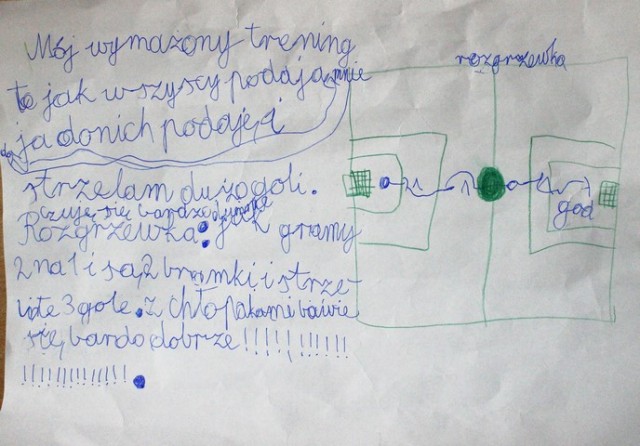 Mój wymażony trening
to jak wszyscy podają mnie
ja do nich podaję i
strzelam dużo goli.
czuję się bardzo
Rozgrzewka: jak gramy
2 na 1 i są 2 bramki i strze-
liłe 3 gole. z chłopakami bawie
się bardo dobrze!!!!!!!!!!!
!!!!!!!!!!!!!.
rozgrzewka
gol